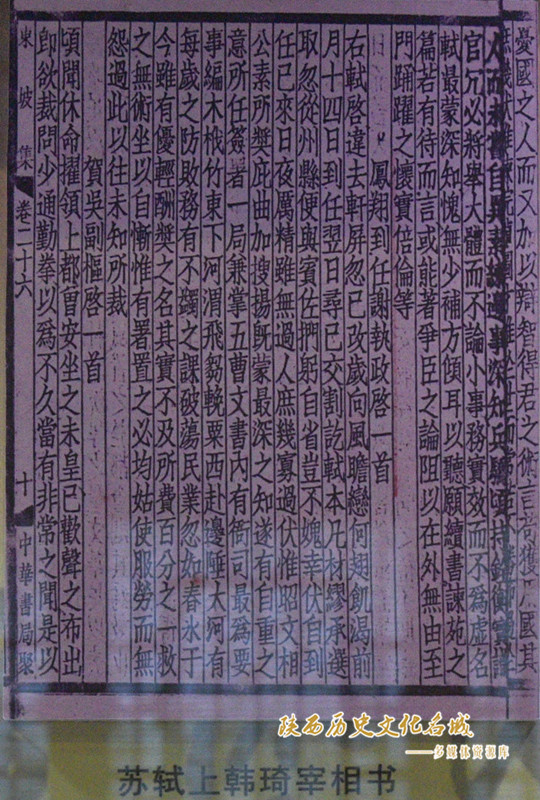 憂國之人而又加以辯智得君之術言苟獲國其
人而未嘗自異邊事深知兵驕頃持銓衡實
官冗必將舉大體而不論小事務實效而不爲虛名
軾最蒙深知愧無少補方傾耳以聽願續書諫苑之
篇若有待而言或能著爭臣之論阻以在外無由至
門踊躍之懷實倍倫等
鳳翔到任謝執政啓一首
右軾啓違去軒屏忽已改歲向風瞻戀何翅飢渴前
月十四日到任翌日尋已交割訖軾本凡材繆承選
取忽從州縣便與賓佐捫躬自省豈不媿幸伏自到
任已來日夜厲精雖無過人庶幾寡過伏惟昭文相
公素所奬庇曲加搜揚旣蒙最深之知遂有自重之
意所任簽署一局兼掌五曹文書內有衙司最爲要
事編木栰竹東下河渭飛芻輓粟西赴邊陲大河有
每歲之防敗務有不蠲之課破蕩民業忽如春氷于
今雖有優輕酬奬之名其實不及所費百分之一救
之無術坐以自慚惟有署置之必均姑使服勞而無
怨過此以往未知所裁
賀吳副樞啓一首
頃聞休命擢領上都曾安坐之未皇已歡聲之布出
卽欲裁問少通勤拳以爲不久當有非常之聞是以
東坡集 卷二十六 十 中華書局聚
陕西历史文化名城
——多媒体资源库
苏轼上韩琦宰相书